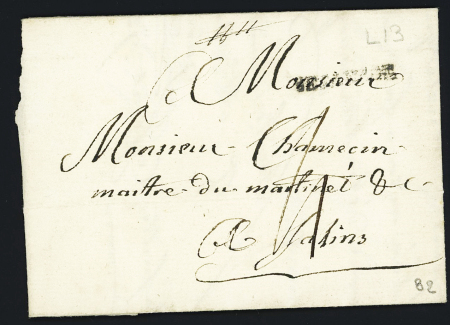 L13
A Monsieur
Monsieur Chamecin
maitre du martinet &c
A Salins
82